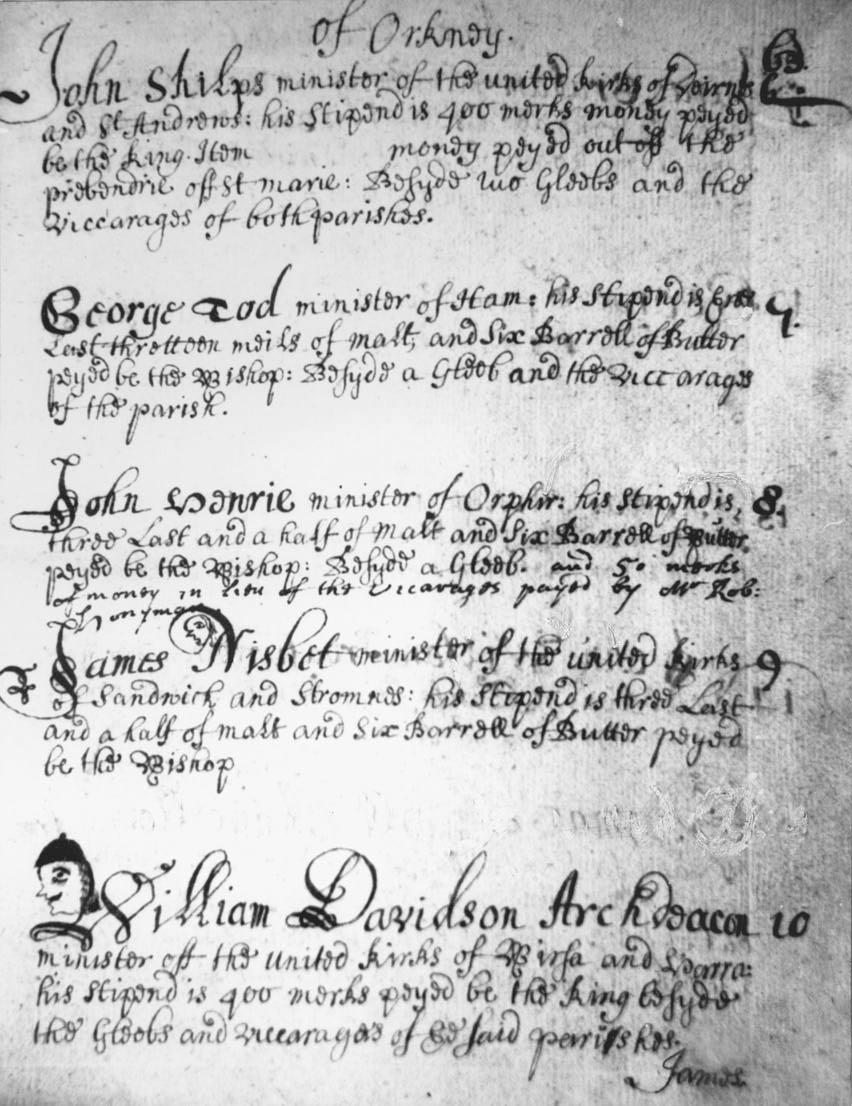 of Orkney.
John Shilps minister of the united kirks of Deirnes 6
and St Andrews: his Stipend is 400 merks money peyed
be the King. Item money peyed out off the
prebendrie off St marie: Besyde two Gleebs and the
viccarages of both parishes.
George Tod minister of Ham: his Stipend is three 7.
Last thretteen meils of malt, and Six Barrell of Butter
peyed be the Bishop: Besyde a Gleeb and the viccarages
of the parish.
John Henrie minister of Orphir: his Stipend is, 8.
three Last and a half of malt and Six Barrell of Butter
peyed be the Bishop: Besyde a Gleeb. and 50 merks
of money in lieu of the Vicarages payed by Mr Rob:
Honyman
James Nisbet minister of the united kirks 9
of Sandwick and Stromnes: his Stipend is three Last
and a half of malt and Six Barrell of Butter peyed
be the Bishop
William Davidson Archdeacon 10
minister off the united kirks of Birsa and Harra:
his Stipend is 400 merks peyed be the King besyde
the Gleebs and viccarages of the said parishes.
James